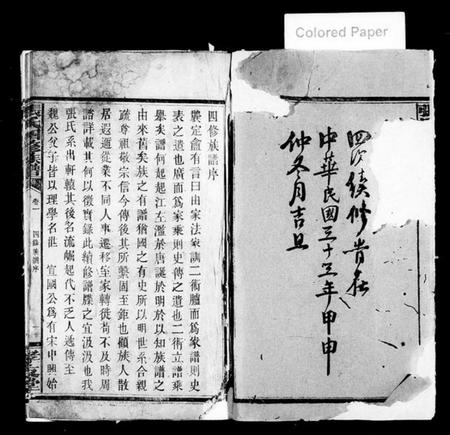 Colored Paper
四次續修
中華民國三十三年甲申
仲冬月吉旦
四修族譜序
龔定盦有言曰由家法家訓二術臚而為家譜則史
表之遺也廣而為家乘則史傳之遺也二術立譜乘
舉矣譜何起起江左濫於唐誕於明於以知族譜之
由來舊矣族之有譜猶國之有史所以明世系合親
疏尊祖敬宗信今傳後其所繫固至鉅也顧族人散
遐邇從業不同人事遷移室家轉徙苟不及時周
諮詳載其何以徵實錄此續修譜牒之宜汲汲也我
張氏系出軒轅其後名流崛起代不乏人遞傳至
魏公父子皆以理學名世 宣國公為有宋中興始
卷一
四修族譜序